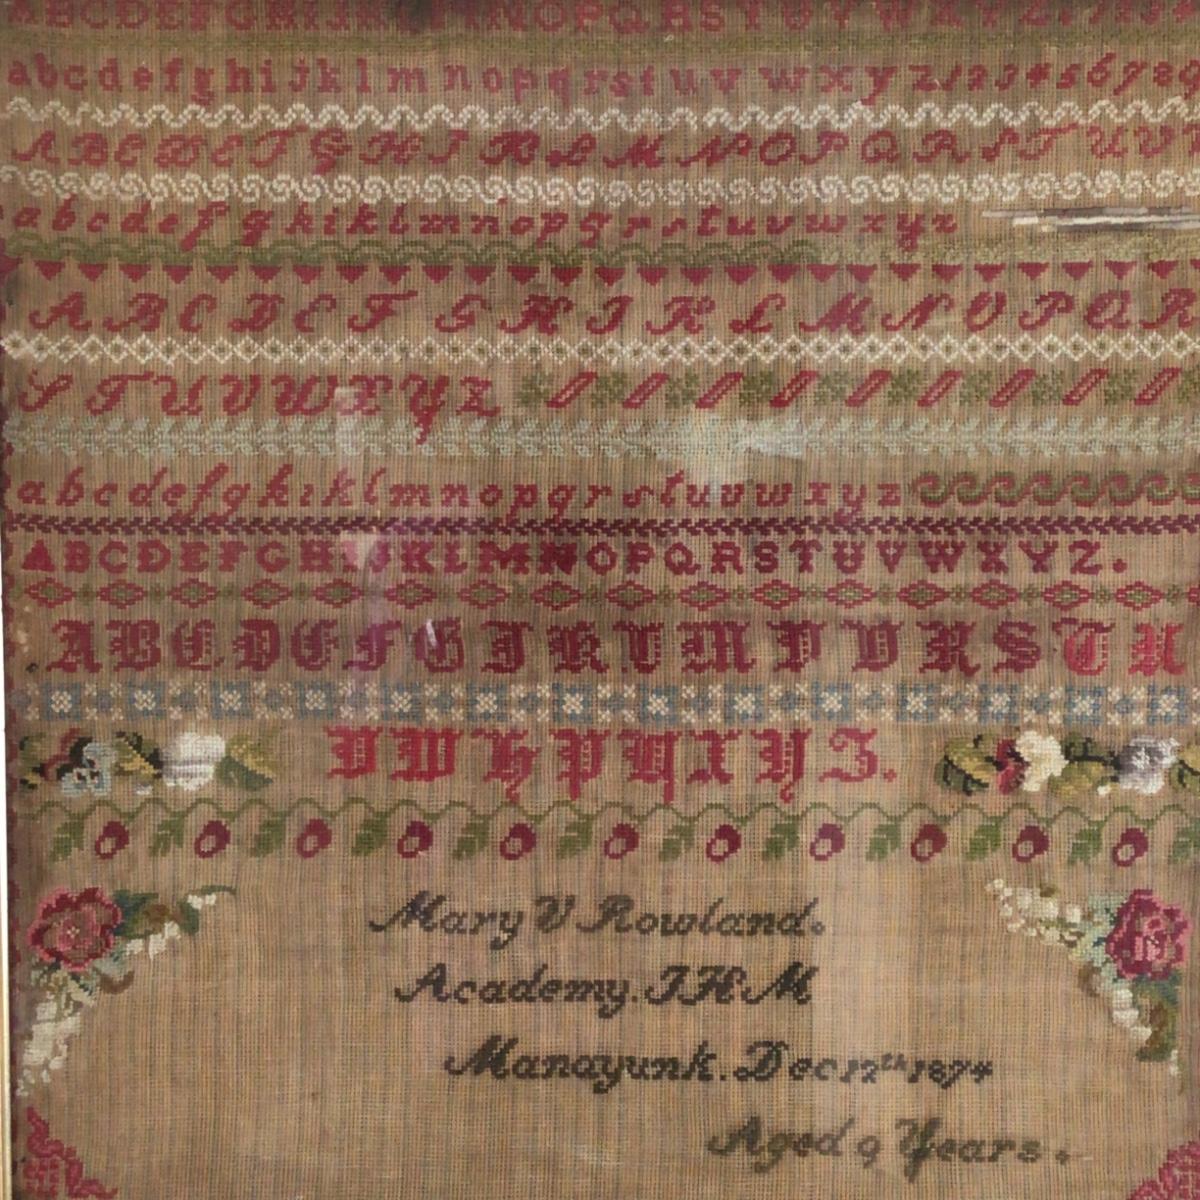 ABCDEFGHIJK MNOPQRSTUVWXYZ1234
abcdefghijklmnopqrstuvwxyz123456789
ABCDEFGHIKLMNOPQRSTUV
abcdefghiklmnopqrstuvwxyz
ABCDEFGHIKLMNOPQR
STUVWXYZ
abcdefghiklmnopqrstuvwxyz
ABCDEFGHIJKLMNOPQRSTUVWXYZ.
Mary V Rowland.
Academy. I H M
Manayunk. Dec 12th 1874
Aged 9 Years.